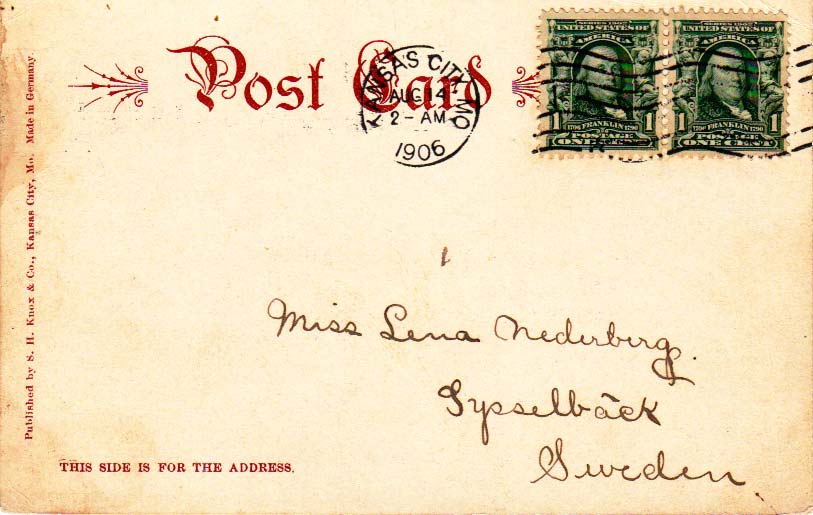 Post Card
KANSAS CITY, MO.
AUG 14
2 - AM
1906
SERIES 1902
UNITED STATES OF
AMERICA
1 1706 FRANKLIN 1790 1
POSTAGE
ONE CENT
SERIES 1902
UNITED STATES OF
AMERICA
1 1706 FRANKLIN 1790 1
POSTAGE
ONE CENT
Published by S. H. Knox & Co., Kansas City, Mo. Made in Germany.
Miss Lena Nederberg.
Sysselbäck
Sweden
THIS SIDE IS FOR THE ADDRESS.